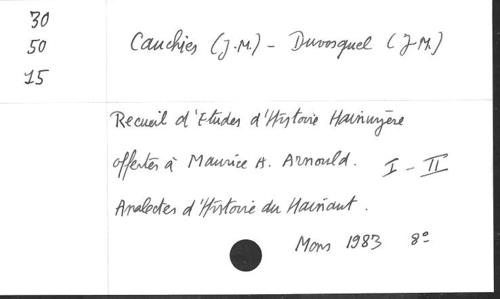 30
50
15
Cauchies (J.M.) - Duvosquel (J.M.)
Recueil d'Etudes d'Histoire Hainuyère
offertes à Maurice A. Arnould. I - II
Analectes d'Histoire du Hainaut.
Mons 1983 8°